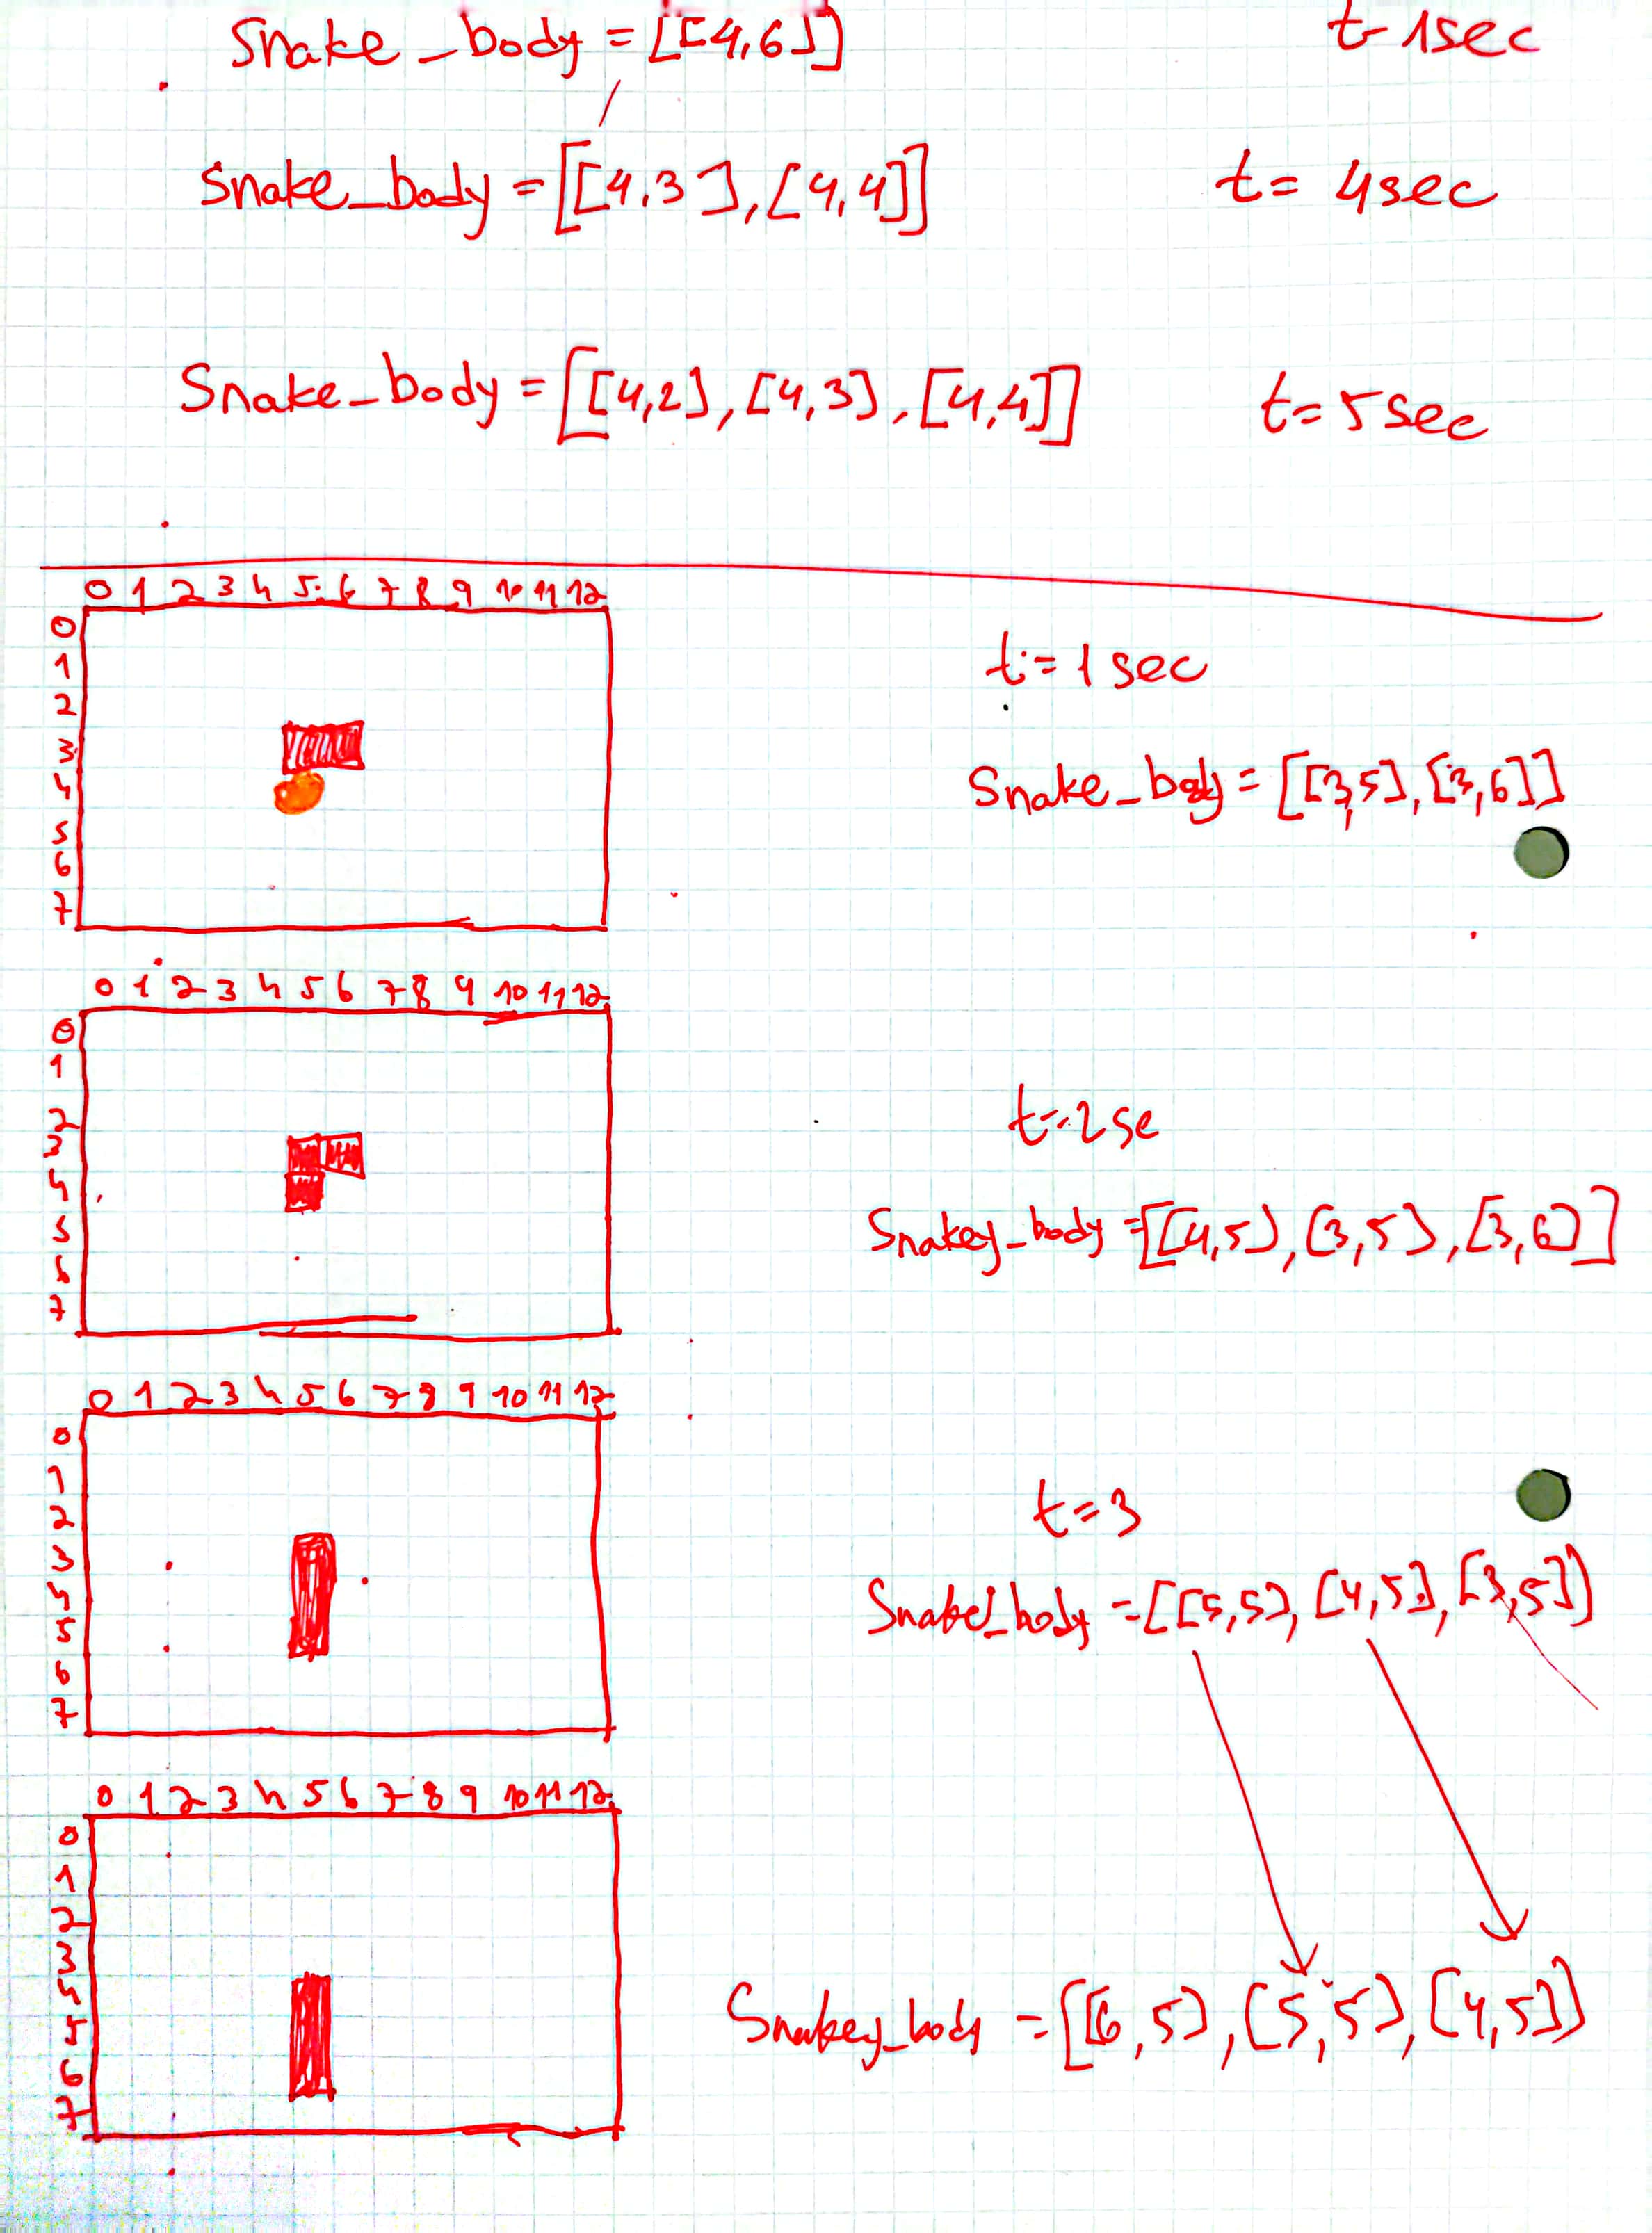 Snake_body = [[4,6]] t=1sec
Snake_body = [[4,3],[4,4]] t= 4sec
Snake_body = [[4,2],[4,3],[4,4]] t=5sec
0 1 2 3 4 5 6 7 8 9 10 11 12
0
1
2
3
4
5
6
7
t=1sec
Snake_body = [[3,5],[3,6]]
0 1 2 3 4 5 6 7 8 9 10 11 12
0
1
2
3
4
5
6
7
t=2se
Snakey_body =[[4,5],[3,5],[3,6]]
0 1 2 3 4 5 6 7 8 9 10 11 12
0
1
2
3
4
5
6
7
t=3
Snake_body =[[5,5],[4,5],[3,5]]
0 1 2 3 4 5 6 7 8 9 10 11 12
0
1
2
3
4
5
6
7
Snakey_body =[[6,5],[5,5],[4,5]]